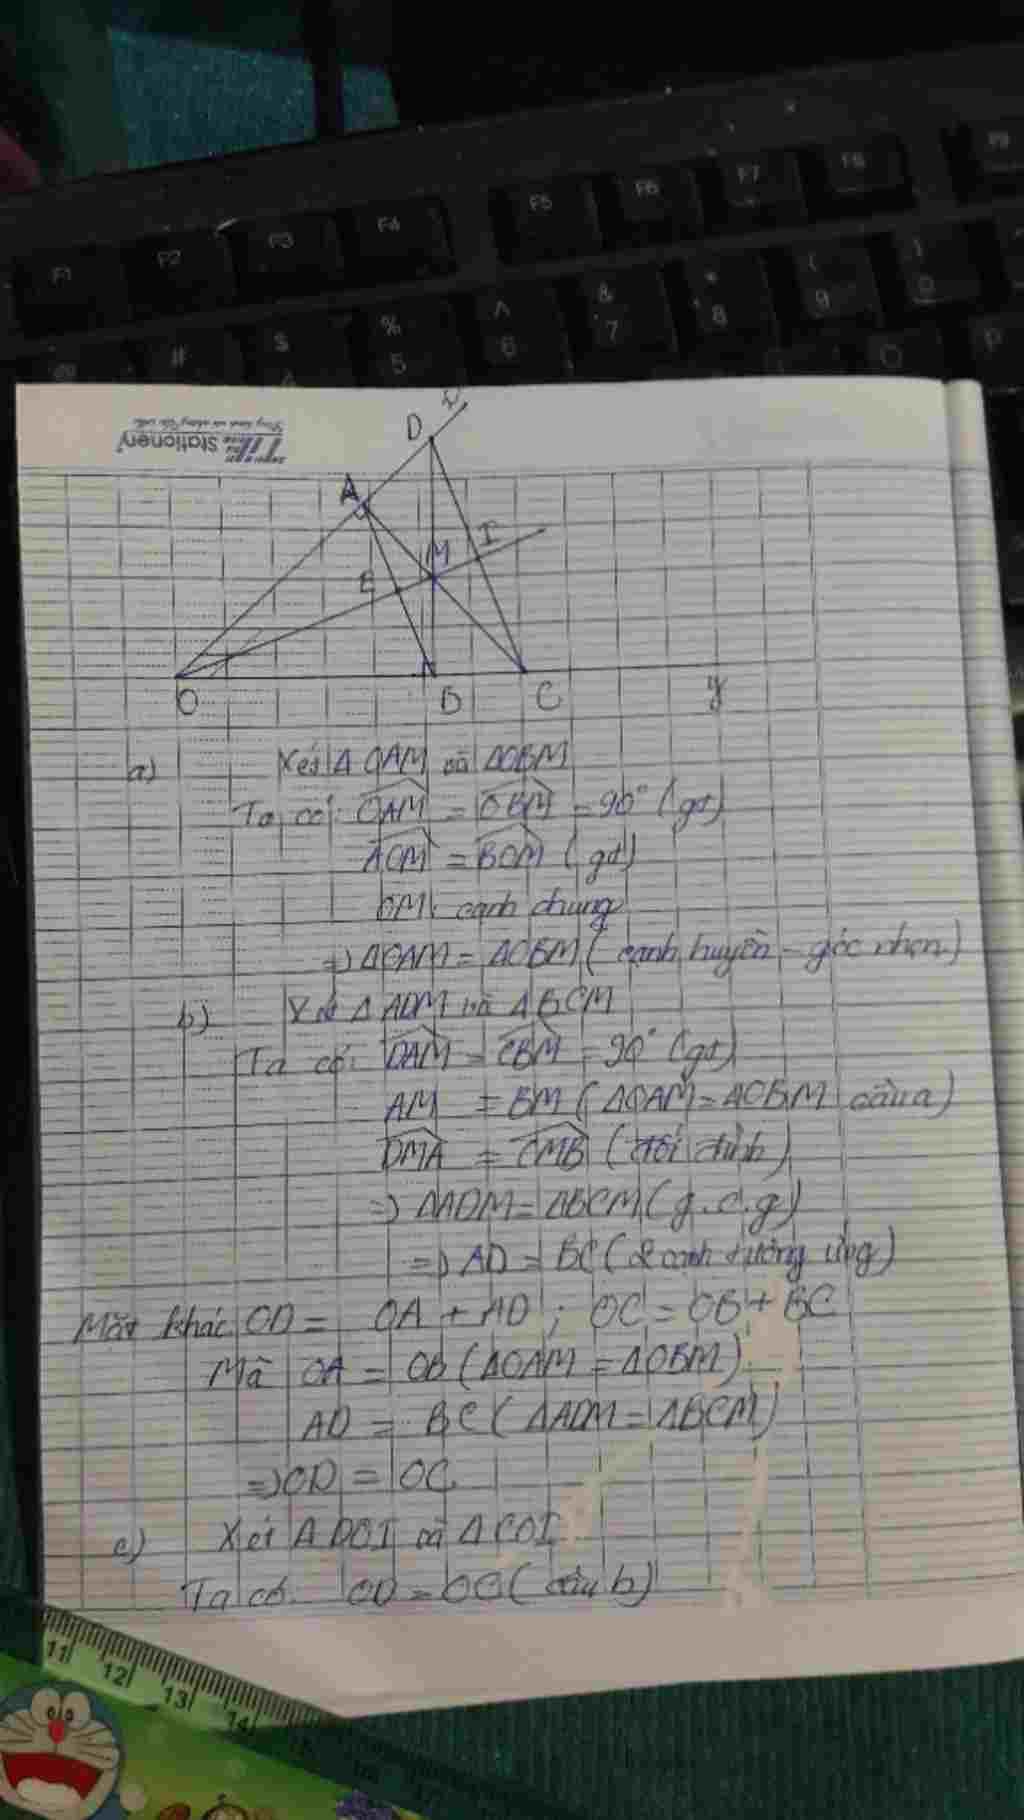 F1 F2 F3 F4 F5 F6 F7 F8 F9
# $ % ^ & * ( )
5 6 7 8 9 0
Stationery
D
A
M I
E
O B C y
a) Xét Δ OAM và ΔOBM
Ta có: OAM = OBM = 90° (gt)
AOM = BOM (gt)
OM: cạnh chung
=> ΔOAM = ΔOBM (cạnh huyền - góc nhọn)
b) Xét Δ ADM và ΔBCM
Ta có: DAM = CBM = 90° (gt)
AM = BM (ΔOAM = ΔOBM câu a)
DMA = CMB (đối đỉnh)
=> ΔADM = ΔBCM (g.c.g)
=> AD = BC (2 cạnh tương ứng)
Mặt khác OD = OA + AD ; OC = OB + BC
Mà OA = OB (ΔOAM = ΔOBM)
AD = BC (ΔADM = ΔBCM)
=> OD = OC
c) Xét Δ DOI và Δ COI
Ta có: OD = OC (câu b)
11 12 13 14